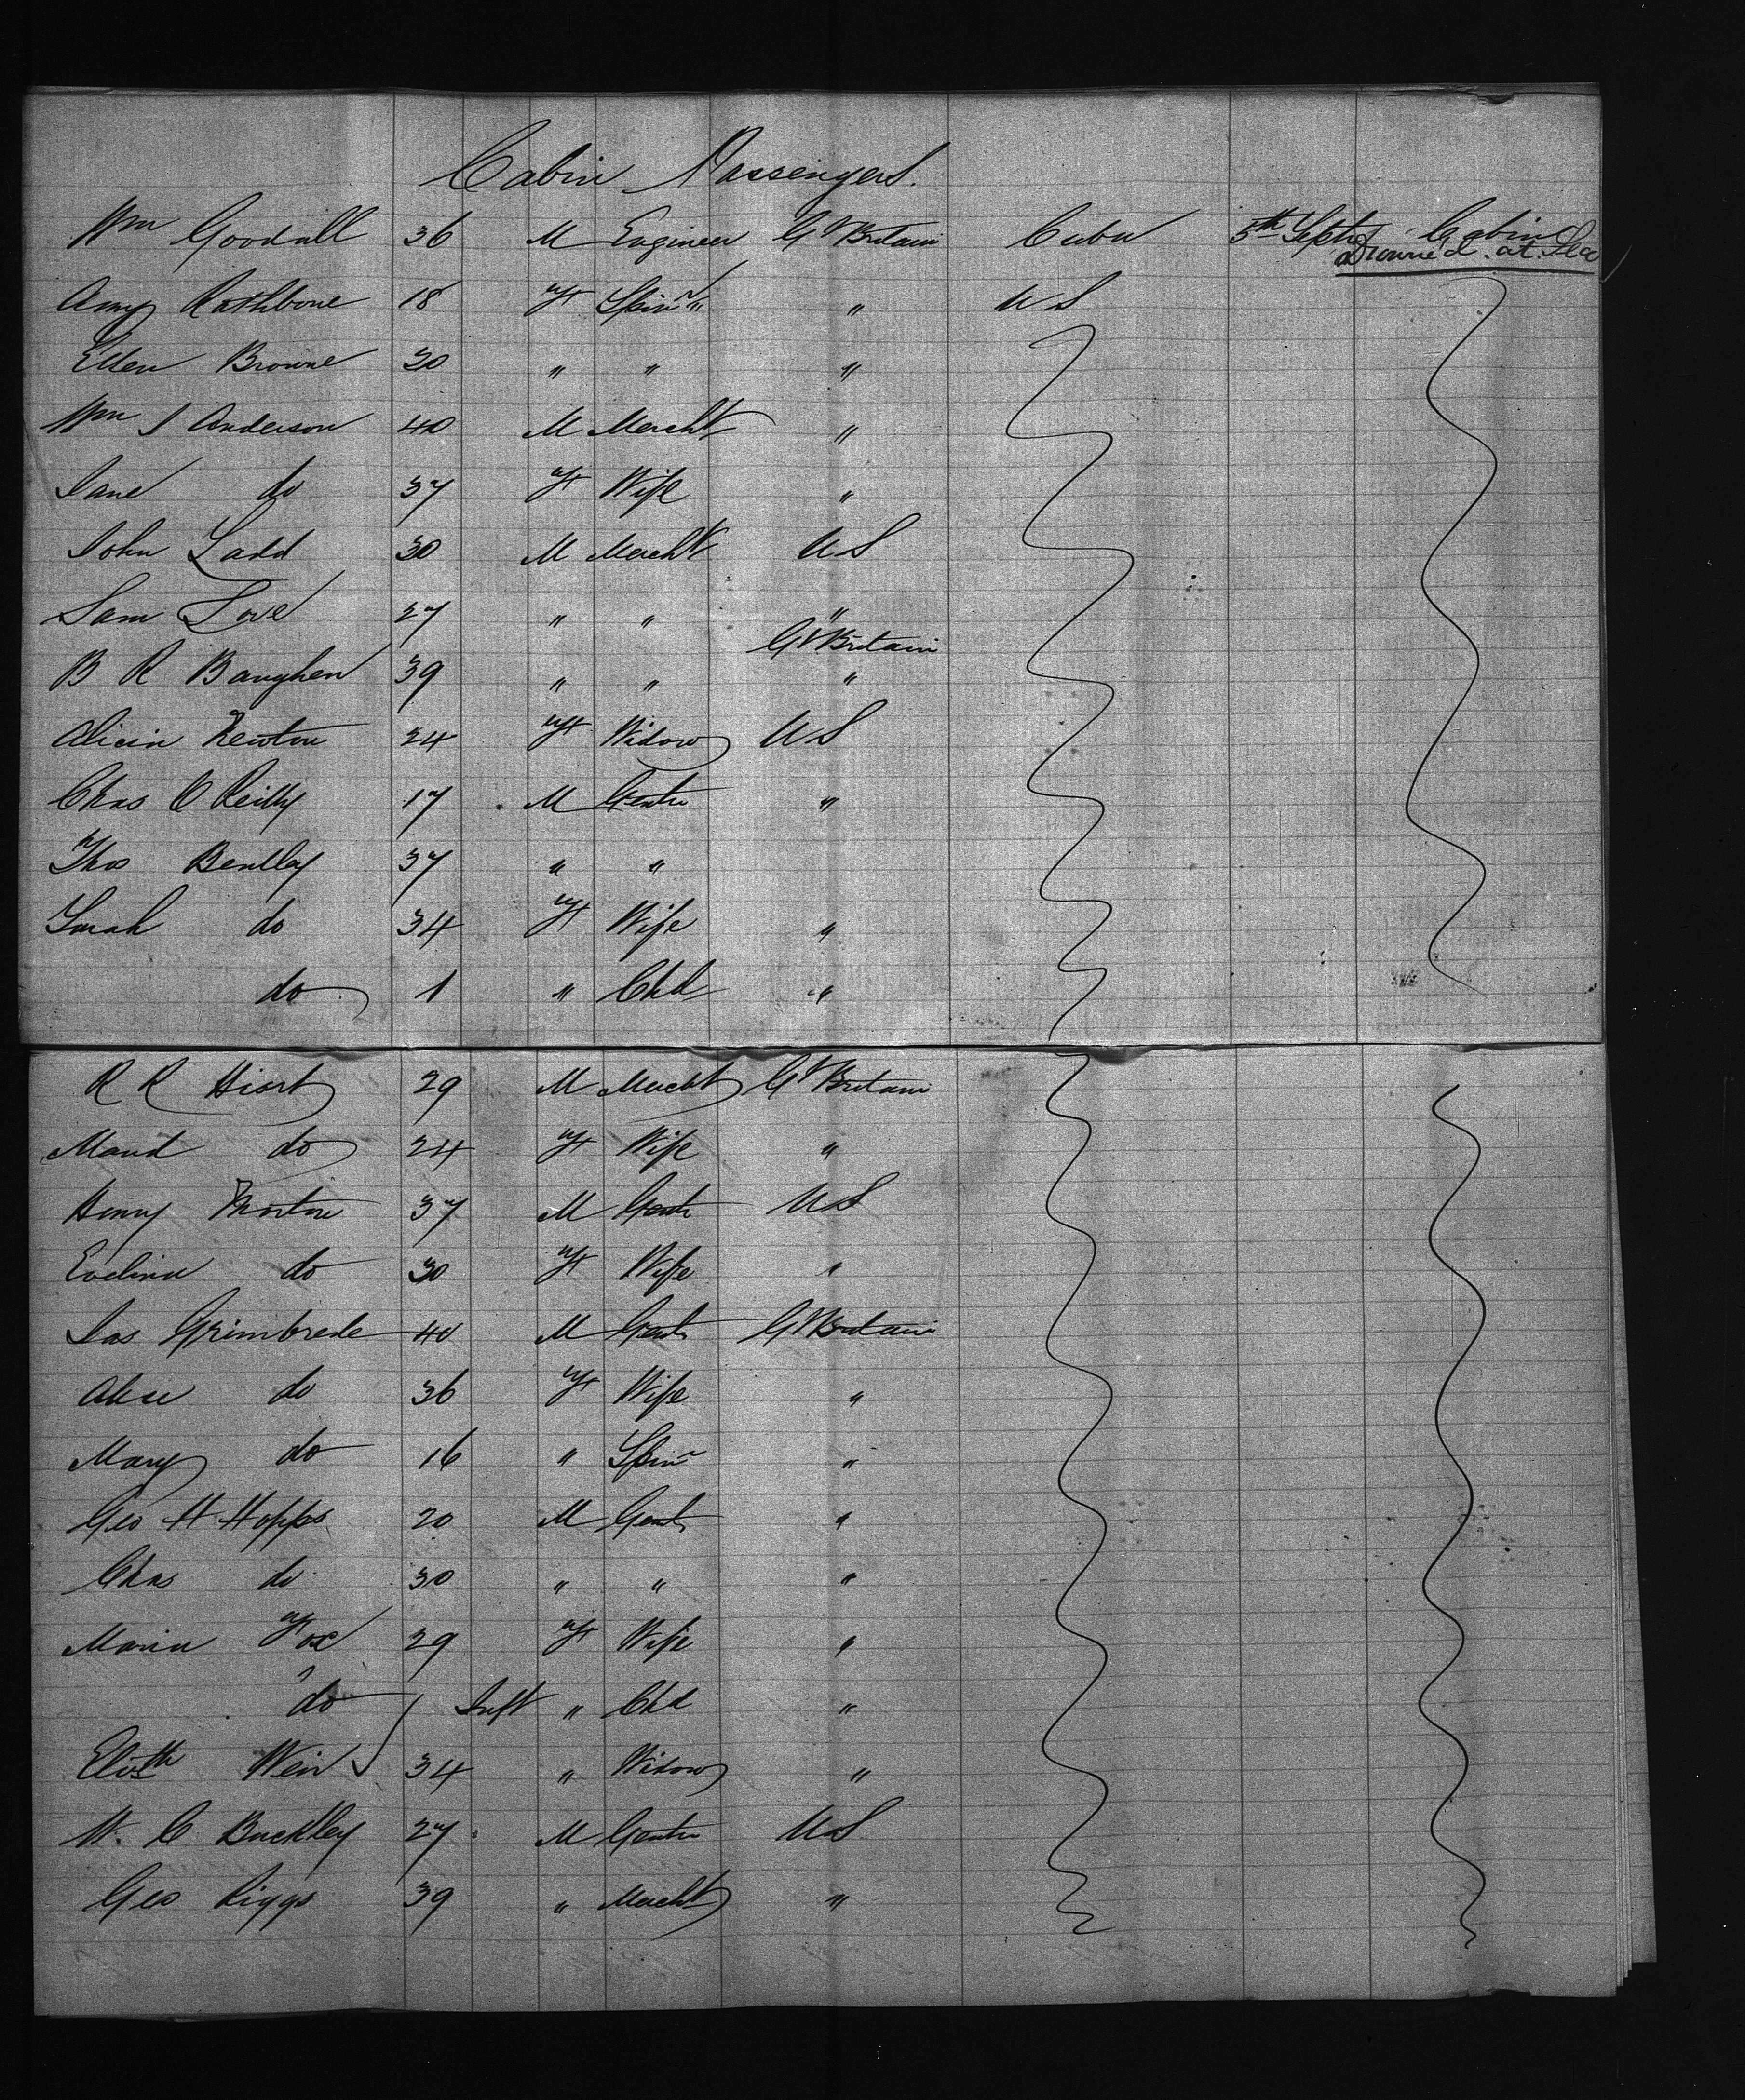 Cabin Passengers.
Wm Goodall 36 M Engineer Gt Britain Cuba 5th Septr Cabin
drowned at Sea
Amy Rathbone 18 F Spinr " U S
Ellen Browne 30 " " "
Wm J Anderson 40 M Mercht "
Jane do 37 F Wife "
John Ladd 30 M Mercht U S
Sam Love 27 " " "
Gt Britain
B R Baughen 39 " " "
Alicia Newton 24 F Widow U S
Chas O Reilly 17 M Gentn "
Thos Bentley 37 " "
Sarah do 34 F Wife "
do 1 " Chd "
R R Hiort 29 M Mercht Gt Britain
Maud do 24 F Wife "
Henry Morton 37 M Gentn U S
Evelina do 30 F Wife "
Jas Grimbrede 40 M Gentn Gt Britain
Alice do 36 F Wife "
Mary do 16 " Spinr "
Geo H Hopps 20 M Gentn "
Chas do 30 " " "
Maria Fox 29 F Wife "
do Inft " Chd "
Elizth Weir 34 " Widow "
W. C Buckley 27 M Gentn U S
Geo Riggs 39 " Mercht "